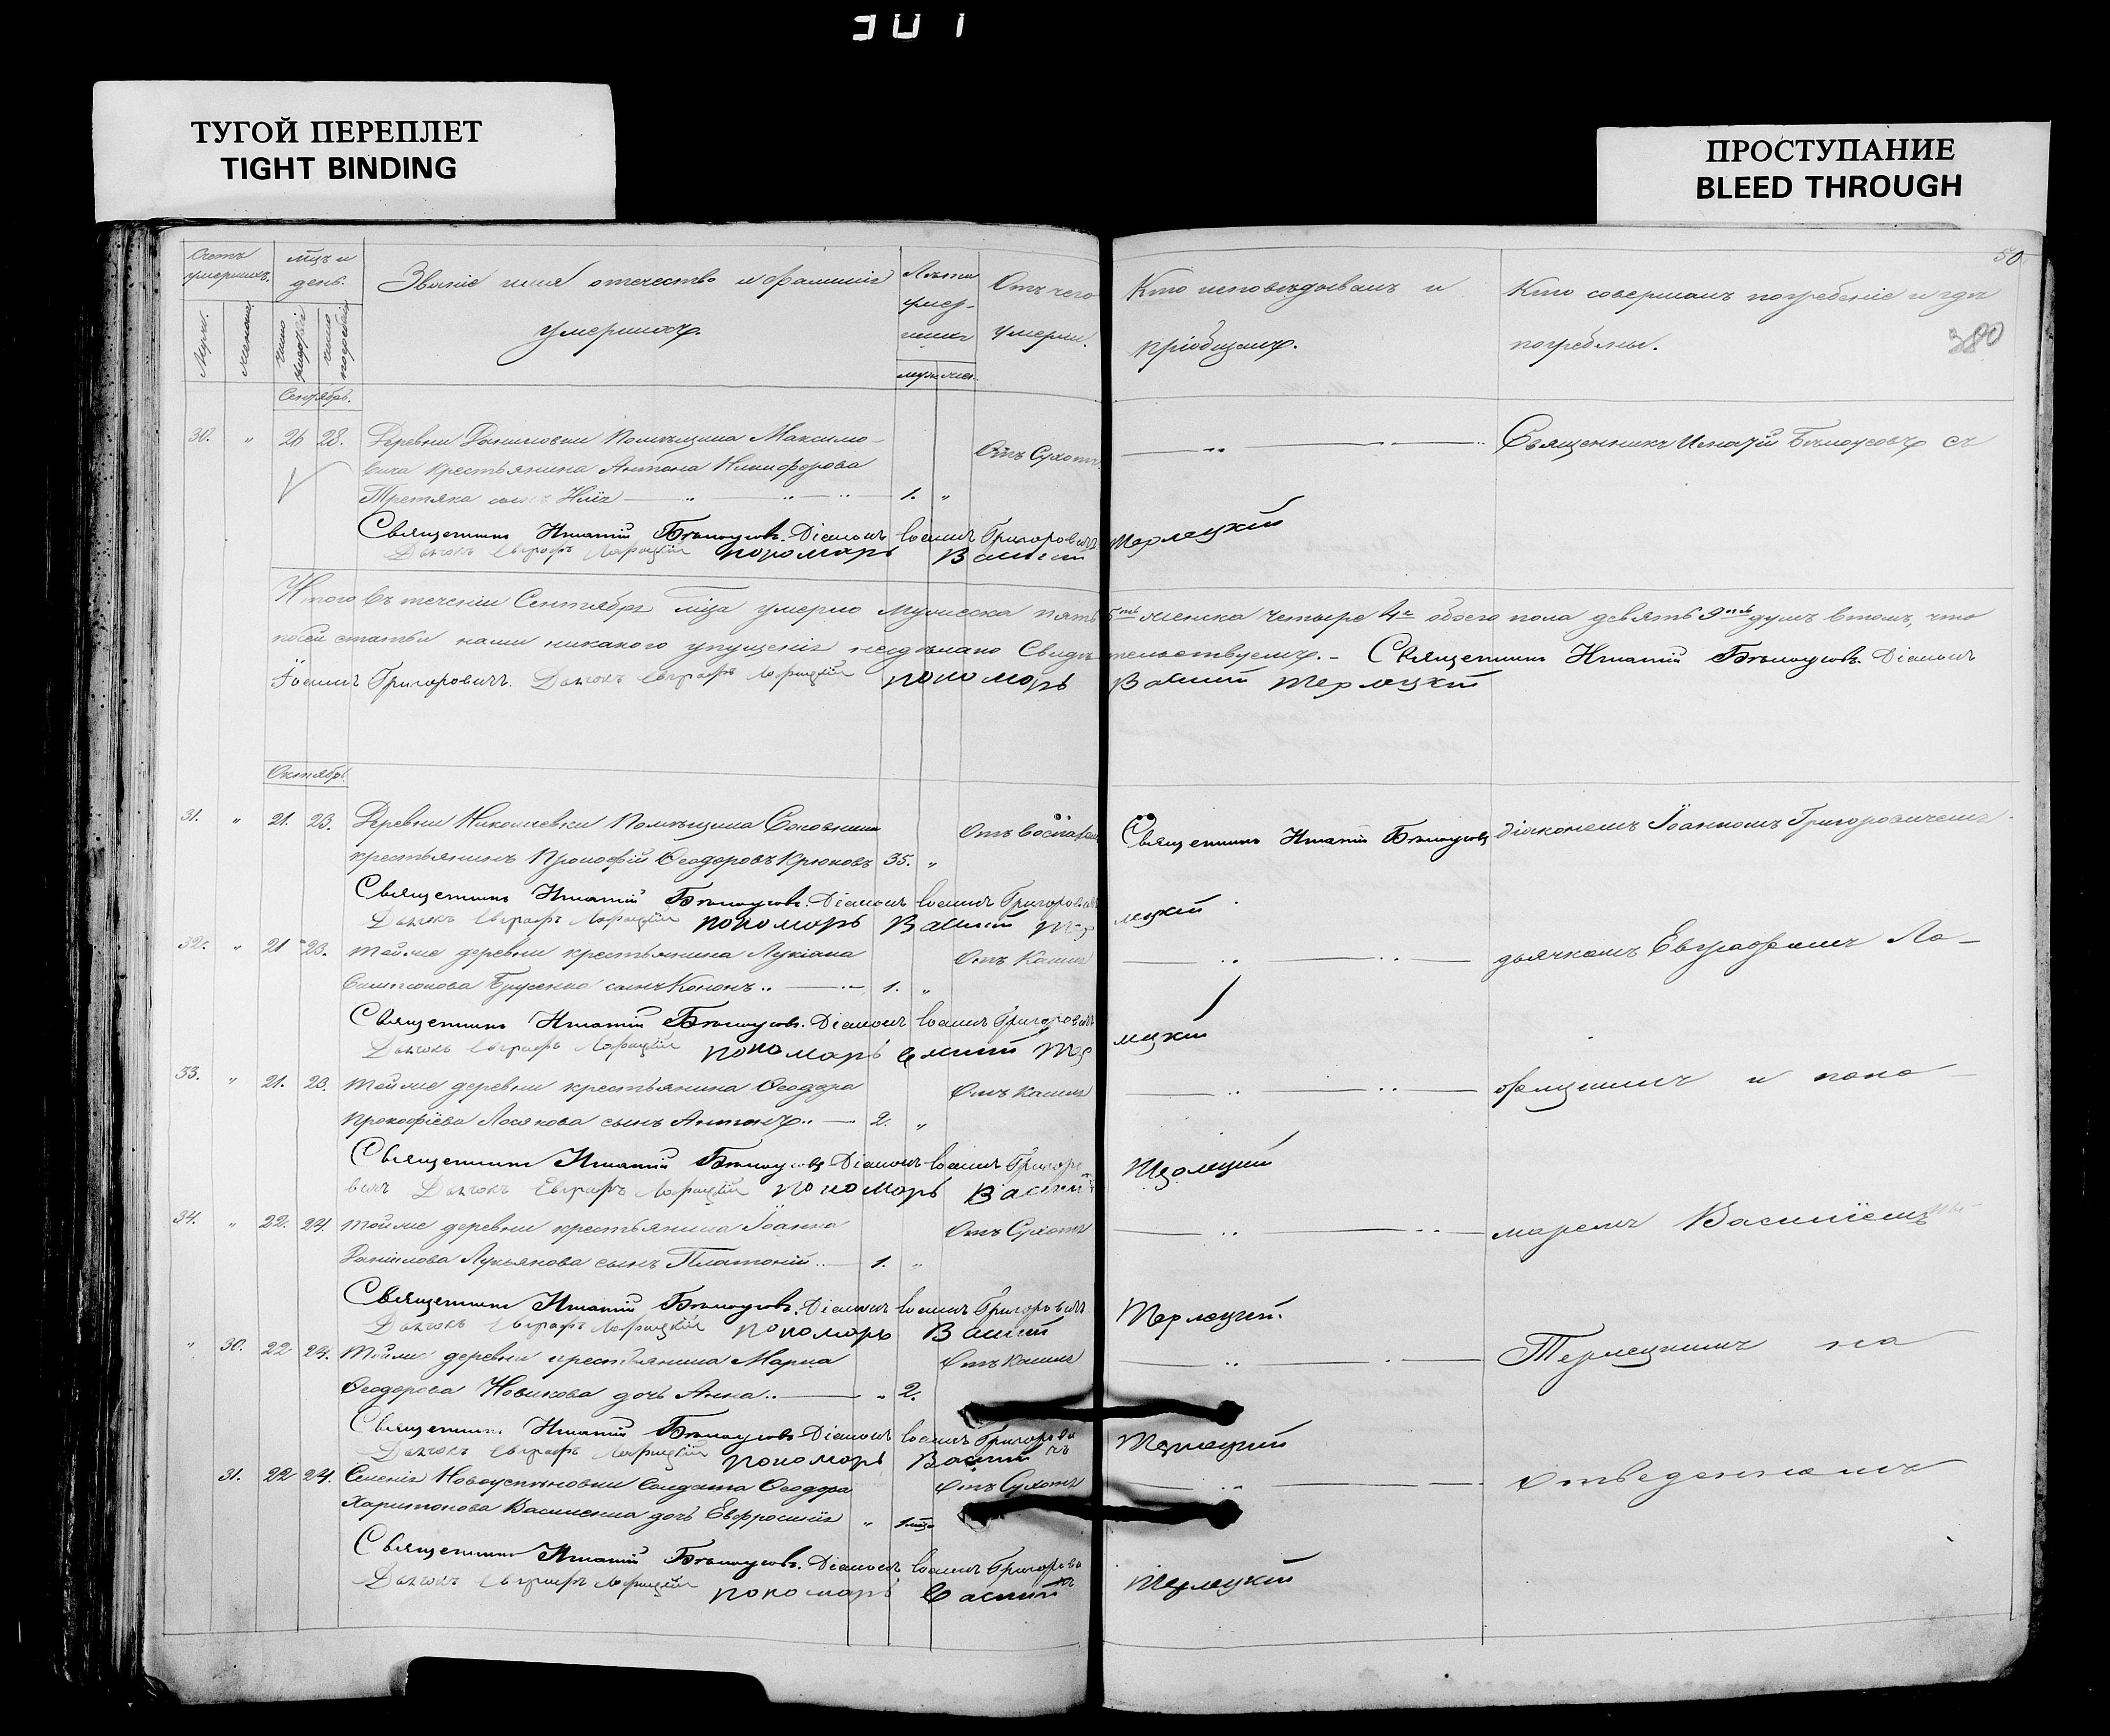 301
ТУГОЙ ПЕРЕПЛЕТ
TIGHT BINDING
ПРОСТУПАНИЕ
BLEED THROUGH
50
380
Счетъ умершихъ.
Мужс.
Женск.
мцъ и день.
число
число
Званіе имя отечество и фамилія
умершихъ.
Лѣта умер-
шихъ
муж. жен.
Отъ чего
умерли.
Кто исповѣдывалъ и
пріобщалъ.
Кто совершалъ погребеніе и гдѣ
погребены.
Сентябрь.
30. „ 26 28. Деревни Даниловки Помѣщика Максимо-
вича крестьянина Антона Никифорова
Третяка сынъ Илія 1. „
Отъ Сухотъ.
Священникъ Игнатій Бѣлоусовъ съ
Священникъ Игнатій Бѣлоусовъ. Діаконъ Іоаннъ Григоровичъ
Дьячокъ Евграфъ пономарь Василій Терлецкій
Итого въ теченіи Сентября мца умерло мужеска пять 5ть женска четыре 4е обоего пола девять 9ть душъ втомъ, что
по сей статьи нами никакого упущенія несдѣлано Свидѣтельствуемъ. – Священникъ Игнатій Бѣлоусовъ. Діаконъ
Іоаннъ Григоровичъ. Дьячокъ Евграфъ пономарь Василій Терлецкій
Октябрь.
31. „ 21. 23. Деревни Николаевки Помѣщика
крестьянинъ Прокофій Ѳеодоровъ Крюковъ 35. „
Отъ
Священникъ Игнатій Бѣлоусовъ
діякономъ Іоанномъ Григоровичемъ
Священникъ Игнатій Бѣлоусовъ. Діаконъ Іоаннъ Григоровичъ
Дьячокъ Евграфъ пономарь Василій Терлецкій
32. „ 21 23. тойже деревни крестьянина Лукіана
Сампсонова Брусенко сынъ Кононъ 1. „
Отъ Кашля
дьячкомъ Евграфомъ Ло-
Священникъ Игнатій Бѣлоусовъ. Діаконъ Іоаннъ Григоровичъ
Дьячокъ Евграфъ пономарь Василій Терлецкій
33. „ 21. 23. тойже деревни крестьянина Ѳеодора
Прокофіева сынъ Антонъ 2. „
Отъ Кашля
фицкимъ и поно
Священникъ Игнатій Бѣлоусовъ Діаконъ Іоаннъ Григоро
вичъ Дьячокъ Евграфъ пономарь Василій Терлецкій
34. „ 22. 24. тойже деревни крестьянина Іоанна
Даніилова Лукьянова сынъ Платоній 1. „
Отъ Сухотъ
маремъ Василіемъ
Священникъ Игнатій Бѣлоусовъ. Діаконъ Іоаннъ Григоровичъ
Дьячокъ Евграфъ пономарь Василій Терлецкій.
„ 30. 22 24. Тойже деревни крестьянина Марка
Ѳеодорова Новикова дочь Анна „ 2.
Отъ Кашля
Терлецкимъ на
Священникъ Игнатій Бѣлоусовъ Діаконъ Іоаннъ Григоровичъ
Дьячокъ Евграфъ пономарь Василій Терлецкій
31. 22 24. Селенія солдата Ѳеодора
Харитонова дочь Евфросинія „ 1 мца
Отъ Сухотъ
отведенномъ
Священникъ Игнатій Бѣлоусовъ. Діаконъ Іоаннъ Григоровичъ
Дьячокъ Евграфъ пономарь Василій Терлецкій